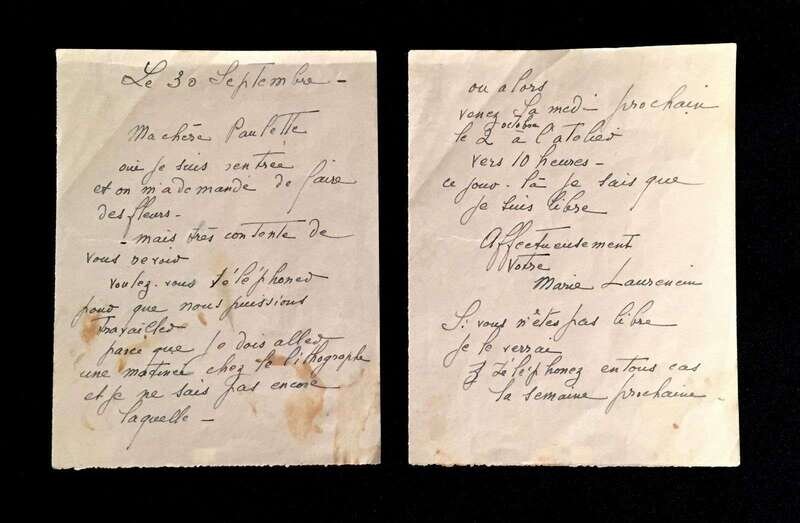 Le 30 Septembre -
Ma chère Paulette
oui je suis rentrée
et on m'a demandé de faire
des fleurs -
- mais très contente de
vous revoir
voulez-vous téléphoner
pour que nous puissions
travailler
parce que je dois aller
une matinée chez le lithographe
et je ne sais pas encore
laquelle -
ou alors
venez samedi prochain
le 2 octobre à l'atelier
vers 10 heures -
ce jour-là je sais que
je suis libre
Affectueusement
Votre
Marie Laurencin
Si vous n'êtes pas libre
je le verrai
téléphonez en tous cas
la semaine prochaine -